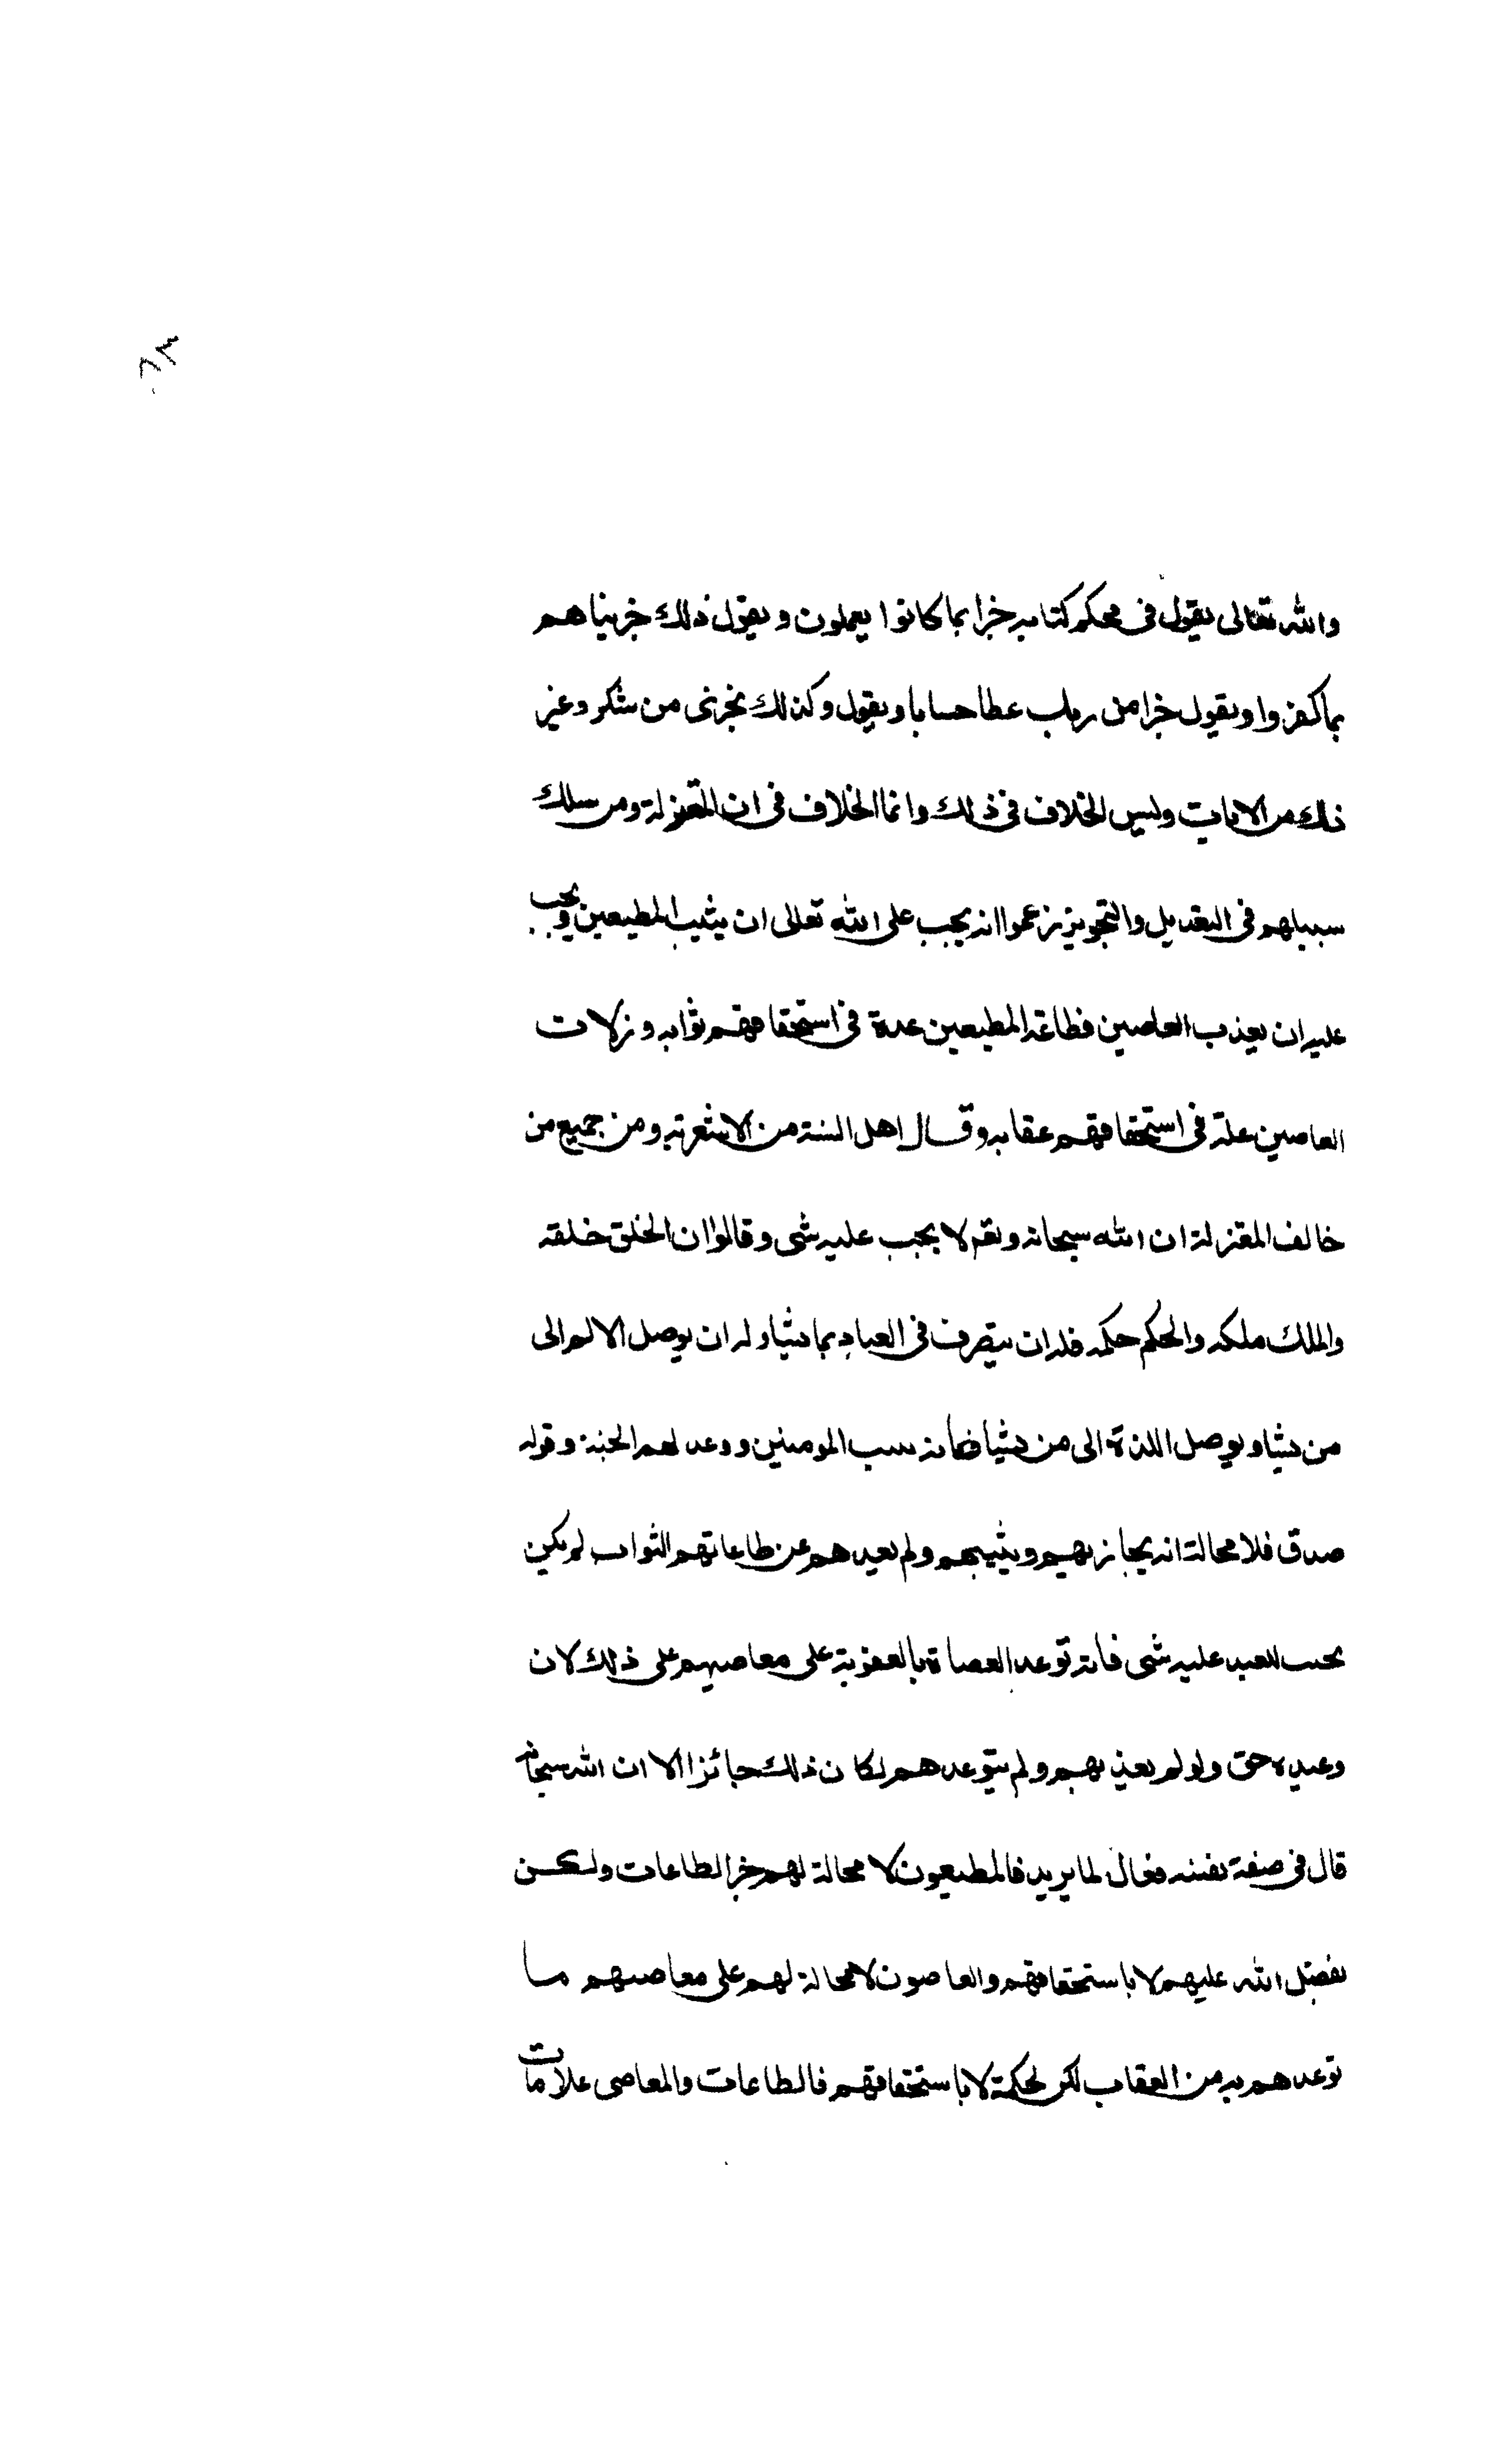 والله تعالى يقول فى محكم كتابه جزا بما كانوا يعملون ويقول ذلك جزيناهم
بما كفروا ويقول جزا من ربك عطا حسابا ويقول وكذلك نجزى من شكر وغير
ذلك من الايات وليس الخلاف فى ذلك وانما الخلاف فى ان المعتزلة ومن سلك
سبيلهم فى التعديل والتجويز زعموا انه يجب على الله تعالى ان يثيب المطيعين ويجب
عليه ان يعذب العاصين فطاعة المطيعين علة فى استحقاقهم ثوابه وزلات
العاصين علة فى استحقاقهم عقابه وقال اهل السنة من الاشعرية ومن جميع من
خالف المعتزلة ان الله سبحانه وتعم لا يجب عليه شى وقالوا ان الخلق خلقه
والملك ملكه والحكم حكمه فله ان يتصرف فى العباد بما يشا وله ان يوصل الالم الى
من يشا ويوصل اللذة الى من يشا فانه المومنين ووعد لهم الجنة وقوله
صدق فلا محالة انه يجازيهم ويثيبهم ولم يعدهم عن طاعاتهم الثواب لم يكن
يجب للعبد عليه شى فانه توعد العصاة بالعقوبة على معاصيهم على ذلك لان
وعيده حق ولو لم يعذبهم ولم يتوعدهم لكان ذلك جائزا الا ان الله سبحانه
قال فى صفة نفسه فعال لما يريد فالمطيعون لا محالة لهم جزا الطاعات ولكن
بفضل الله عليهم لا باستحقاقهم والعاصون لا محالة لهم على معاصيهم ما
توعدهم به من العقاب لكن لحكمة لا باستحقاقهم فالطاعات والمعاصى علامات